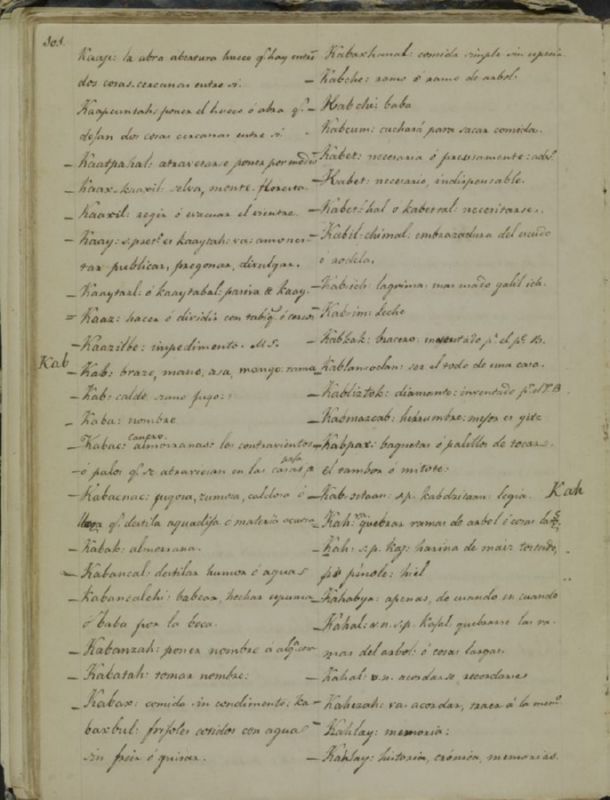 303.
Kaap: la abra abertura hueco q.e hay entre
dos cosas cercanas entre si.
Kaapcuntah: poner el hueco ó abra q.e
dejan dos cosas cercanas entre si.
– Kaatpahal: atravesarse ponerse por medio
– Kaax, kaaxil: selva, monte, floresta.
– Kaaxil: regir ó evacuar el vientre.
– Kaay: s. pret.o es kaaytah: va: amones-
tar publicar, pregonar, divulgar.
– Kaaytaal: ó kaaytabal: pasiva de kaay.
= Kaaz: hacer ó dividir con tabiq.e ó cerco
– Kaazilbe: impedimento. M S.
Kab
– Kab: brazo, mano, asa, mango: rama
– Kab: caldo, zumo jugo:
– Kaba: nombre
– Kabac: almorranas: los contravientos
ó palos q.e se atraviesan en las casas
– Kabacnac: jugosa, zumosa, caldosa ó
q.e destila aguadija ó materia
– Kabak: almorrana.
– Kabancal: destilar humor ó aguas
– Kabancalchi: babear, hechar espuma
ó baba por la boca.
– Kabanzah: poner nombre á alg.a cosa
– Kabatah: tomar nombre:
– Kabax: comida sin condimento: ka-
baxbul: frijoles cosidos con agua
sin freir ó guisar.
Kabaxhanal: comida simple sin especia
– Kabche: ramo ó rama de arbol.
– Kabchi: baba
– Kabcum: cuchara para sacar comida.
Kabet: necesaria ó precisamente: adv.
– Kabet: necesario, indispensable.
– Kabet-hal o kabettal: necesitarse.
– Kabil-chimal: embrazadura del escudo
ó rodela.
– Kabich: lagrima: mas usado yalil ich.
– Kabim: leche
– Kabkak: bracero: inventado p.r el p.e B.
– Kablamoclan: ser el todo de una casa.
– Kabliztok: diamante: inventado p.r el P. B
– Kabmazcab: herrumbre: mejor es yitz
– Kabpax: baquetas ó palillos de tocar
el tambor ó mitote:
– Kab-sitaan: s.p. kabdzitaan: legia.
Kah
– Kah: va: quebrar ramas de arbol ó cosas
– Kah: s.p. kaj: harina de maiz tostado,
pinole: hiel
– Kahabya: apenas, de cuando en cuando
– Kahal: v.n. s.p. kajal: quebrarse las ra-
mas del arbol: ó cosas largas.
– Kahal v.n. acordarse, recordarse
– Kahezah: va: acordar, traer á la mem.a
– Kahlay: memoria:
– Kahlay: historia, crónica, memorias.